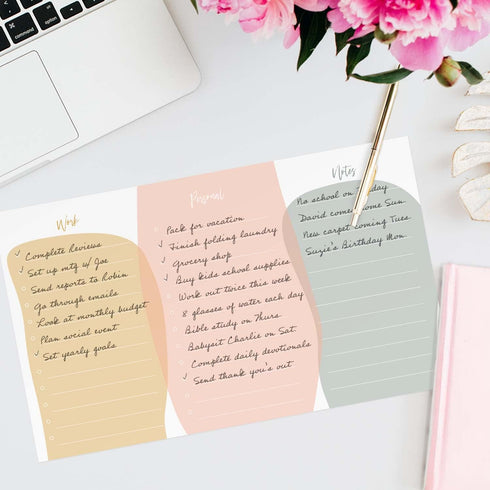 Work
Complete Reviews
Set up mtg w/ Joe
Send reports to Robin
Go through emails
Look at monthly budget
Plan social event
Set yearly goals
Personal
Pack for vacation
Finish folding laundry
Grocery shop
Buy kids school supplies
Work out twice this week
8 glasses of water each day
Bible study on Thurs
Babysit Charlie on Sat.
Complete daily devotionals
Send thank you's out
Notes
No school on
David come home Sun
New carpet coming Tues
Suzie's Birthday Mon